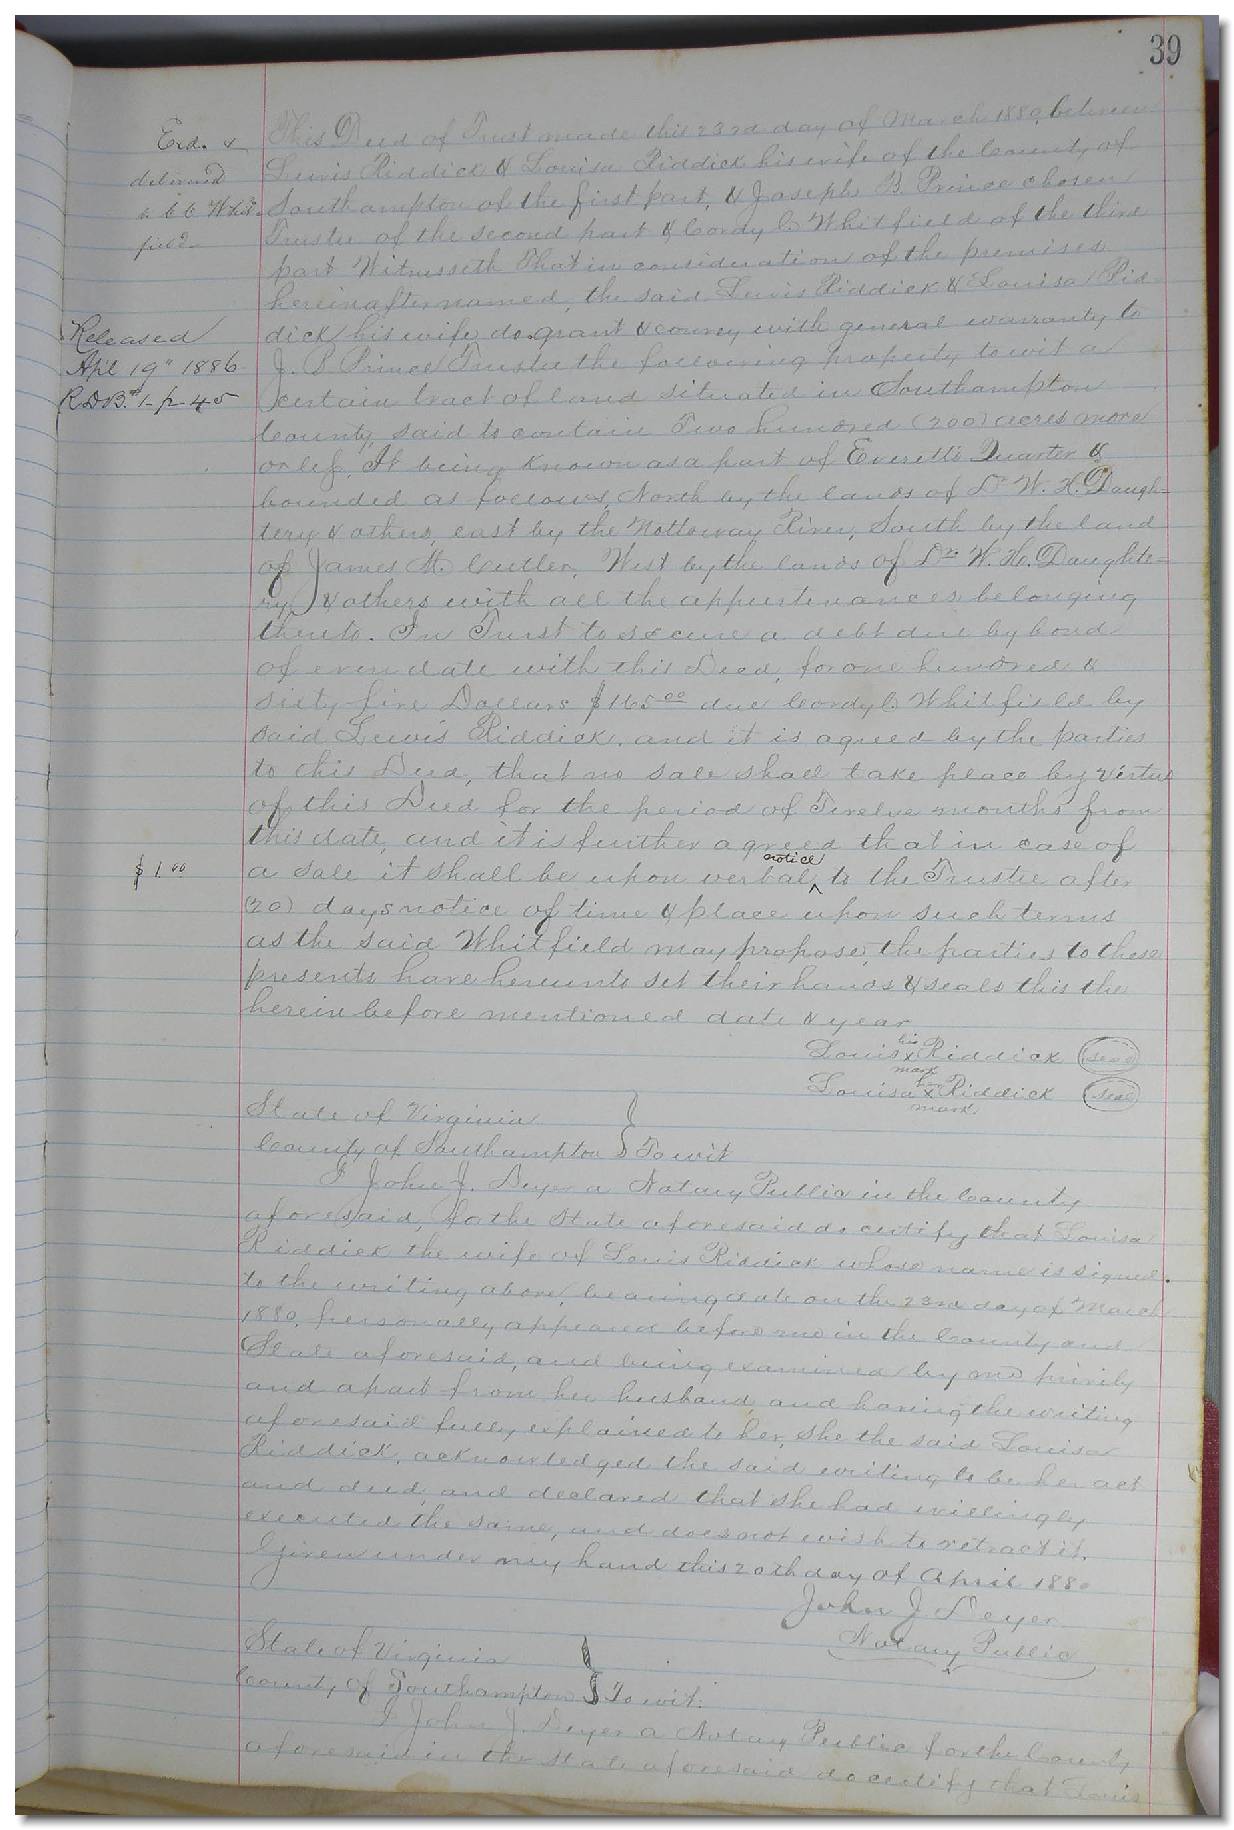 39
Exd. &
delivered
to C C Whit-
field
Released
Apl 19" 1886
R.D.B. 1-p-45
$1.00
This Deed of Trust made this 23rd day of March 1880, between
Lewis Riddick & Louisa Riddick his wife of the County of
Southampton of the first part, & Joseph B. Prince chosen
Trustee of the second part & Cordy C Whitfield of the third
part Witnesseth That in consideration of the premises
hereinafter named, the said Lewis Riddick & Louisa Rid-
dick his wife do grant & convey with general warranty to
J. B Prince Trustee the following property to wit a
certain tract of land situated in Southampton
County, said to contain Two hundred (200) acres more
or less. It being known as a part of Everetts Quarter &
bounded as follows, North by the lands of Dr W. H. Daugh=
tery & others, east by the Nottoway River, South by the land
of James M. Cutler, West by the lands of Dr W. H. Daughte=
ry & others with all the appurtenances belonging
thereto. In Trust to secure a debt due by bond
of even date with this Deed, for one hundred &
sixty five Dollars $165.00 due Cordy C Whitfield by
said Lewis Riddick. and it is agreed by the parties
to this Deed, that no sale shall take place by virtue
of this Deed for the period of Twelve months from
this date, and it is further agreed that in case of
a sale it shall be upon verbal ^notice to the Trustee after
(20) days notice of time & place upon such terms
as the said Whitfield may propose, the parties to these
presents have hereunto set their hands & seals this the
herein before mentioned date & year
Louis his x mark Riddick (seal)
Louisa her x mark Riddick (seal)
State of Virginia
County of Southampton } To wit
I John J. Deyer a Notary Public in the County
aforesaid, for the State aforesaid do certify that Louisa
Riddick the wife of Louis Riddick whose name is signed
to the writing above, bearing date on the 23rd day of March
1880, personally appeared before me in the County and
State aforesaid, and being examined by me privily
and apart from her husband, and having the writing
aforesaid fully explained to her, she the said Louisa
Riddick, acknowledged the said writing to be her act
and deed, and declared that she had willingly
executed the same, and does not wish to retract it.
Given under my hand this 20th day of April 1880
John J Deyer
Notary Public
State of Virginia
County of Southampton } To wit:
I John J. Deyer a Notary Public for the County
aforesaid in the State aforesaid do certify that Louis